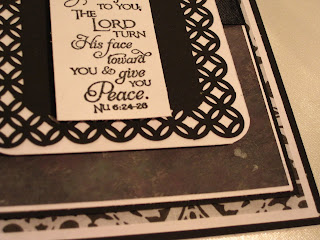 TO YOU;
THE
LORD
TURN
His face
toward
YOU & give
you
Peace.
NU 6:24-26